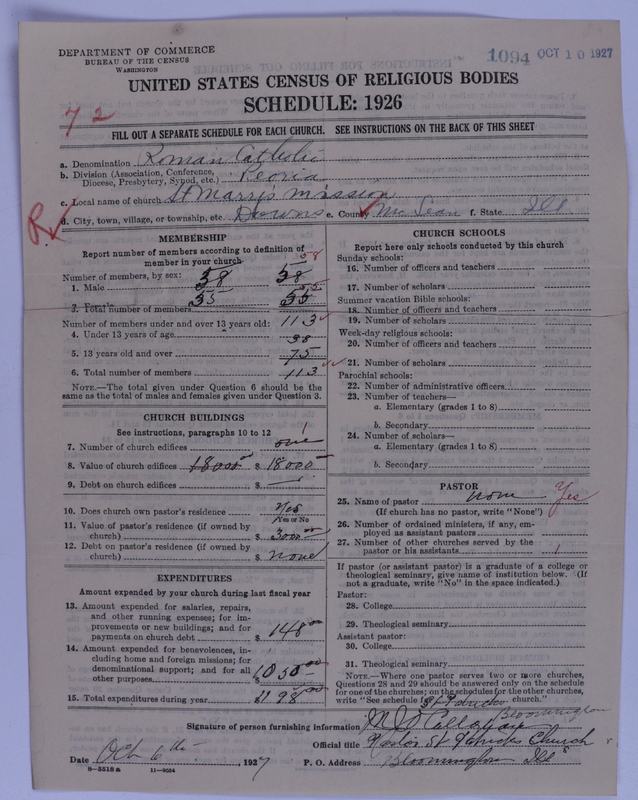 DEPARTMENT OF COMMERCE
BUREAU OF THE CENSUS
WASHINGTON
1094 OCT 10 1927
UNITED STATES CENSUS OF RELIGIOUS BODIES
SCHEDULE: 1926
72
FILL OUT A SEPARATE SCHEDULE FOR EACH CHURCH. SEE INSTRUCTIONS ON THE BACK OF THIS SHEET
a. Denomination Roman Catholic
b. Division (Association, Conference, Diocese, Presbytery, Synod, etc.) Peoria
c. Local name of church St Mary's mission
R
d. City, town, village, or township, etc. Downs e. County McLean f. State Ill
MEMBERSHIP
Report number of members according to definition of
member in your church
58
Number of members, by sex:
1. Male 58 58
55
3. Total number of members 55 55
Number of members under and over 13 years old: 113
4. Under 13 years of age 38
5. 13 years old and over 75
6. Total number of members 113
NOTE.—The total given under Question 6 should be
same as the total of males and females given under Question 3.
CHURCH BUILDINGS
See instructions, paragraphs 10 to 12
1
7. Number of church edifices one
8. Value of church edifices 18000 $ 18000
9. Debt on church edifices $ —
10. Does church own pastor's residence Yes
Yes or No
11. Value of pastor's residence (if owned by
church) $ 3000 00
12. Debt on pastor's residence (if owned by
church) $ none
EXPENDITURES
Amount expended by your church during last fiscal year
13. Amount expended for salaries, repairs,
and other running expenses; for im-
provements or new buildings; and for
payments on church debt $ 148 00
14. Amount expended for benevolences, in-
cluding home and foreign missions; for
denominational support; and for all
other purposes 1050 00
15. Total expenditures during year 1198 00
CHURCH SCHOOLS
Report here only schools conducted by this church
Sunday schools:
16. Number of officers and teachers
17. Number of scholars
Summer vacation Bible schools:
18. Number of officers and teachers
19. Number of scholars
Week-day religious schools:
20. Number of officers and teachers
21. Number of scholars
Parochial schools:
22. Number of administrative officers
23. Number of teachers—
a. Elementary (grades 1 to 8)
b. Secondary
24. Number of scholars—
a. Elementary (grades 1 to 8)
b. Secondary
PASTOR
25. Name of pastor none Yes
(If church has no pastor, write "None")
26. Number of ordained ministers, if any, em-
ployed as assistant pastors
27. Number of other churches served by the
pastor or his assistants 1
If pastor (or assistant pastor) is a graduate of a college or
theological seminary, give name of institution below. (If
not a graduate, write "No" in the space indicated.)
Pastor:
28. College
29. Theological seminary
Assistant pastor:
30. College
31. Theological seminary
NOTE.—Where one pastor serves two or more churches,
Questions 28 and 29 should be answered only on the schedule
for one of the churches; on the schedules for the other churches,
write "See schedule for St Patricks church."
Bloomington
Signature of person furnishing information
Official title Pastor St Patricks Church
Date Oct 6th, 1927
P. O. Address Bloomington Ill
8-5518a 11-9024